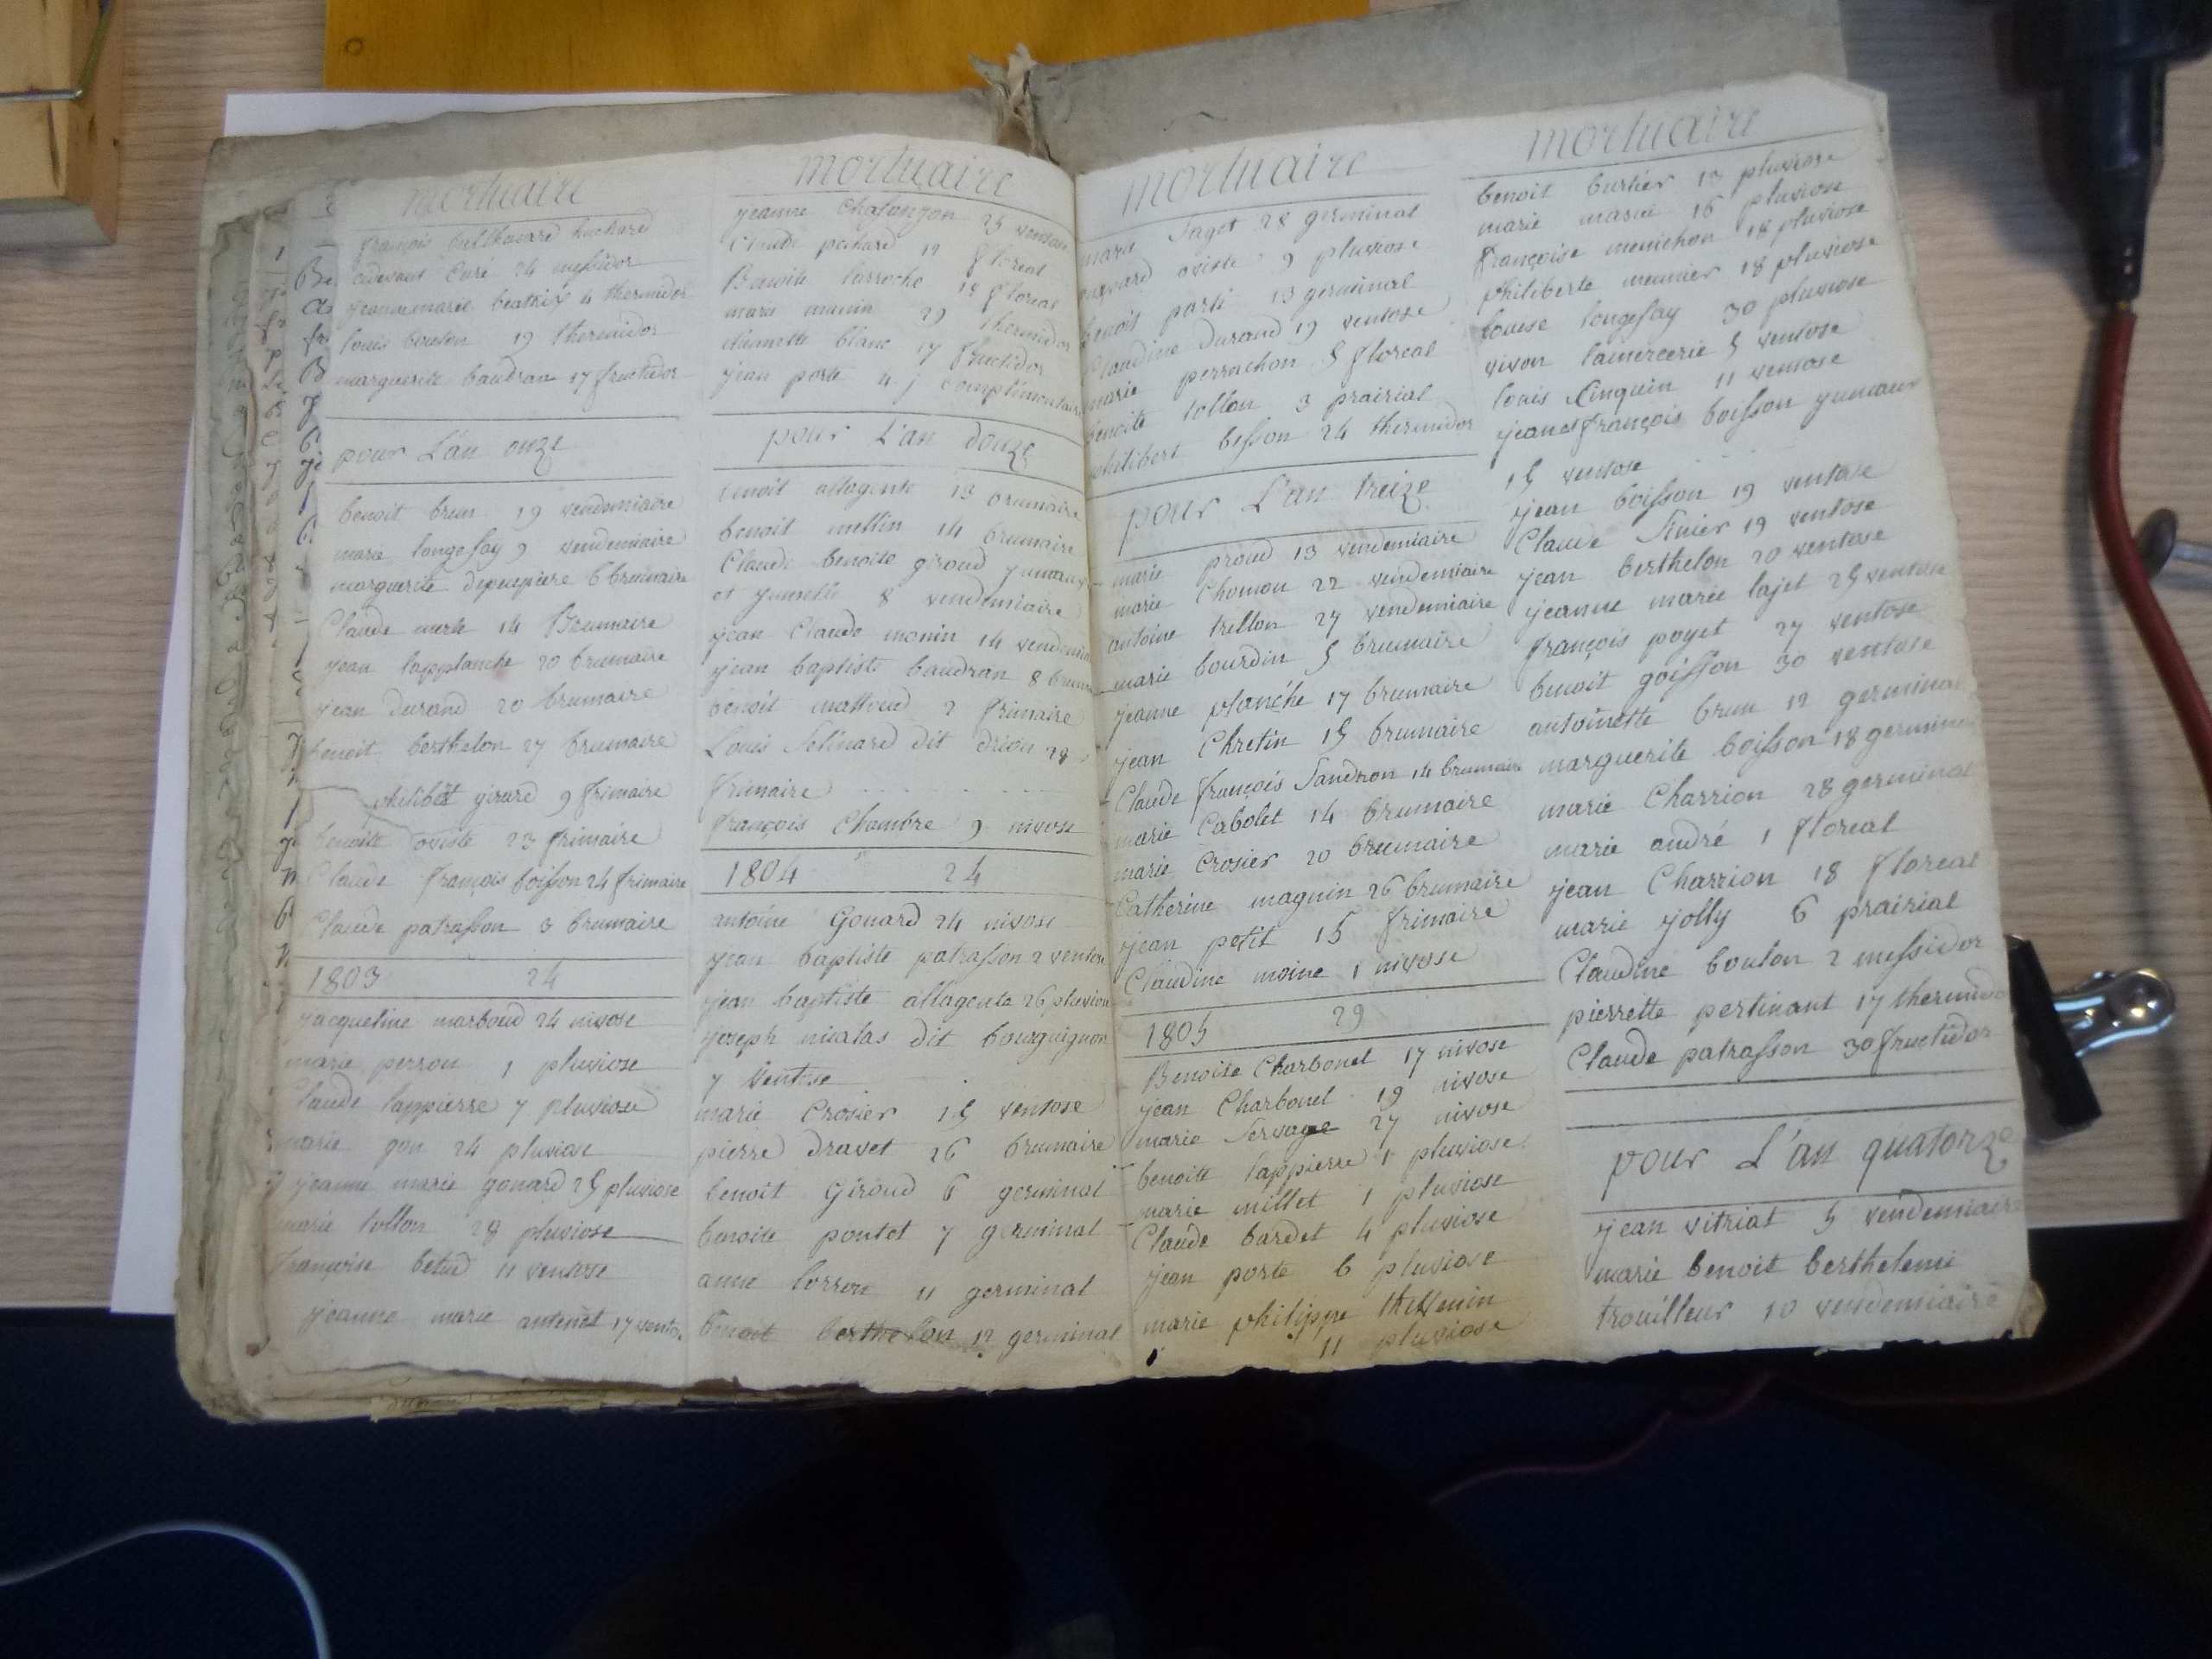 mortuaire
françois
curé 24 messidor
jeanne marie beatrix 4 thermidor
louis bouton 19 thermidor
marguerite baudran 17 fructidor
pour L'an onze
benoit brun 19 vendemiaire
marie longefay 9 vendemiaire
marguerite depeupiere 6 brumaire
Claude merle 14 Brumaire
jean lapplanche 20 brumaire
jean durand 20 brumaire
benoit berthelon 27 brumaire
philibert girard 9 frimaire
benoite oviste 23 frimaire
Claude françois boisson 24 frimaire
Claude patrasson 3 brumaire
1803 24
jacqueline marboud 24 nivose
marie perron 1 pluviose
Claude lappierre 7 pluviose
marie gon 24 pluviose
jeanne marie gonard 25 pluviose
marie tollon 28 pluviose
françoise betud 11 ventose
jeanne marie 17
mortuaire
jeanne Chafongon 25 ventose
Claude pechard 12 floreal
Benoite larroche 19 floreal
marie manin 29 thermidor
blanc 17 fructidor
jean porte 4 j complémentaire
pour L'an douze
benoit allagente 13 brumaire
benoit mellin 14 brumaire
Claude benoite giroud jumeaux
et jumelle 8 vendemiaire
jean Claude monin 14
jean baptiste baudran 8
benoit mattoud 2 frimaire
Louis Selinard dit drion 28
frimaire
françois Chambre 9 nivose
1804 24
antoine Gonard 24 nivose
jean baptiste patrasson 2 ventose
jean baptiste allagente 26 pluviose
joseph nicolas dit bourguignon
7 Ventose
marie Crosier 15 ventose
pierre Dravet 26 brumaire
benoit Giroud 6 germinal
benoite pontet 7 germinal
anne lorron 11 germinal
benoit berthelon 12 germinal
mortuaire
marie Saget 28 germinal
oviste 9 pluviose
benoit parti 13 germinal
Claudine Durand 19 ventose
marie perrachon 5 floreal
benoite tollon 3 prairial
philibert besson 24 thermidor
pour L'an treize
marie proud 13 vendemiaire
marie Chomon 22 vendemiaire
antoine trellon 27 vendemiaire
marie bourdin 5 brumaire
jeanne planche 17 brumaire
jean Chretin 15 brumaire
Claude françois Sandron 14 brumaire
marie Cabolet 14 brumaire
marie Crosier 20 brumaire
Catherine magnin 26 brumaire
jean petit 15 frimaire
Claudine moine 1 nivose
1805 29
Benoite Charbonel 17 nivose
jean Charbonel 19 nivose
marie Servage 27 nivose
benoite lappierre 1 pluviose
marie millet 1 pluviose
Claude bardet 4 pluviose
jean porte 6 pluviose
marie philippe thevenin
11 pluviose
mortuaire
benoit burtier 13 pluviose
marie 16 pluviose
françoise menichon 18 pluviose
philiberte meunier 18 pluviose
louise longefay 30 pluviose
vivon lamercerie 5 ventose
louis Cinquin 11 ventose
jean et françois boisson jumeaux
15 ventose
jean boisson 19 ventose
Claude Sivier 19 ventose
jean berthelon 20 ventose
jeanne marie lajet 25 ventose
françois poyet 27 ventose
benoit goisson 30 ventose
antoinette brun 12 germinal
marguerite boisson 18 germinal
marie Charrion 28 germinal
marie andré 1 floreal
jean Charrion 18 floreal
marie jolly 6 prairial
Claudine bouton 2 messidor
pierrette pertinant 17 thermidor
Claude patrasson 30 fructidor
pour L'an quatorze
jean vitriat 5 vendemiaire
marie benoit berthelemi
trouilleur 10 vendemiaire